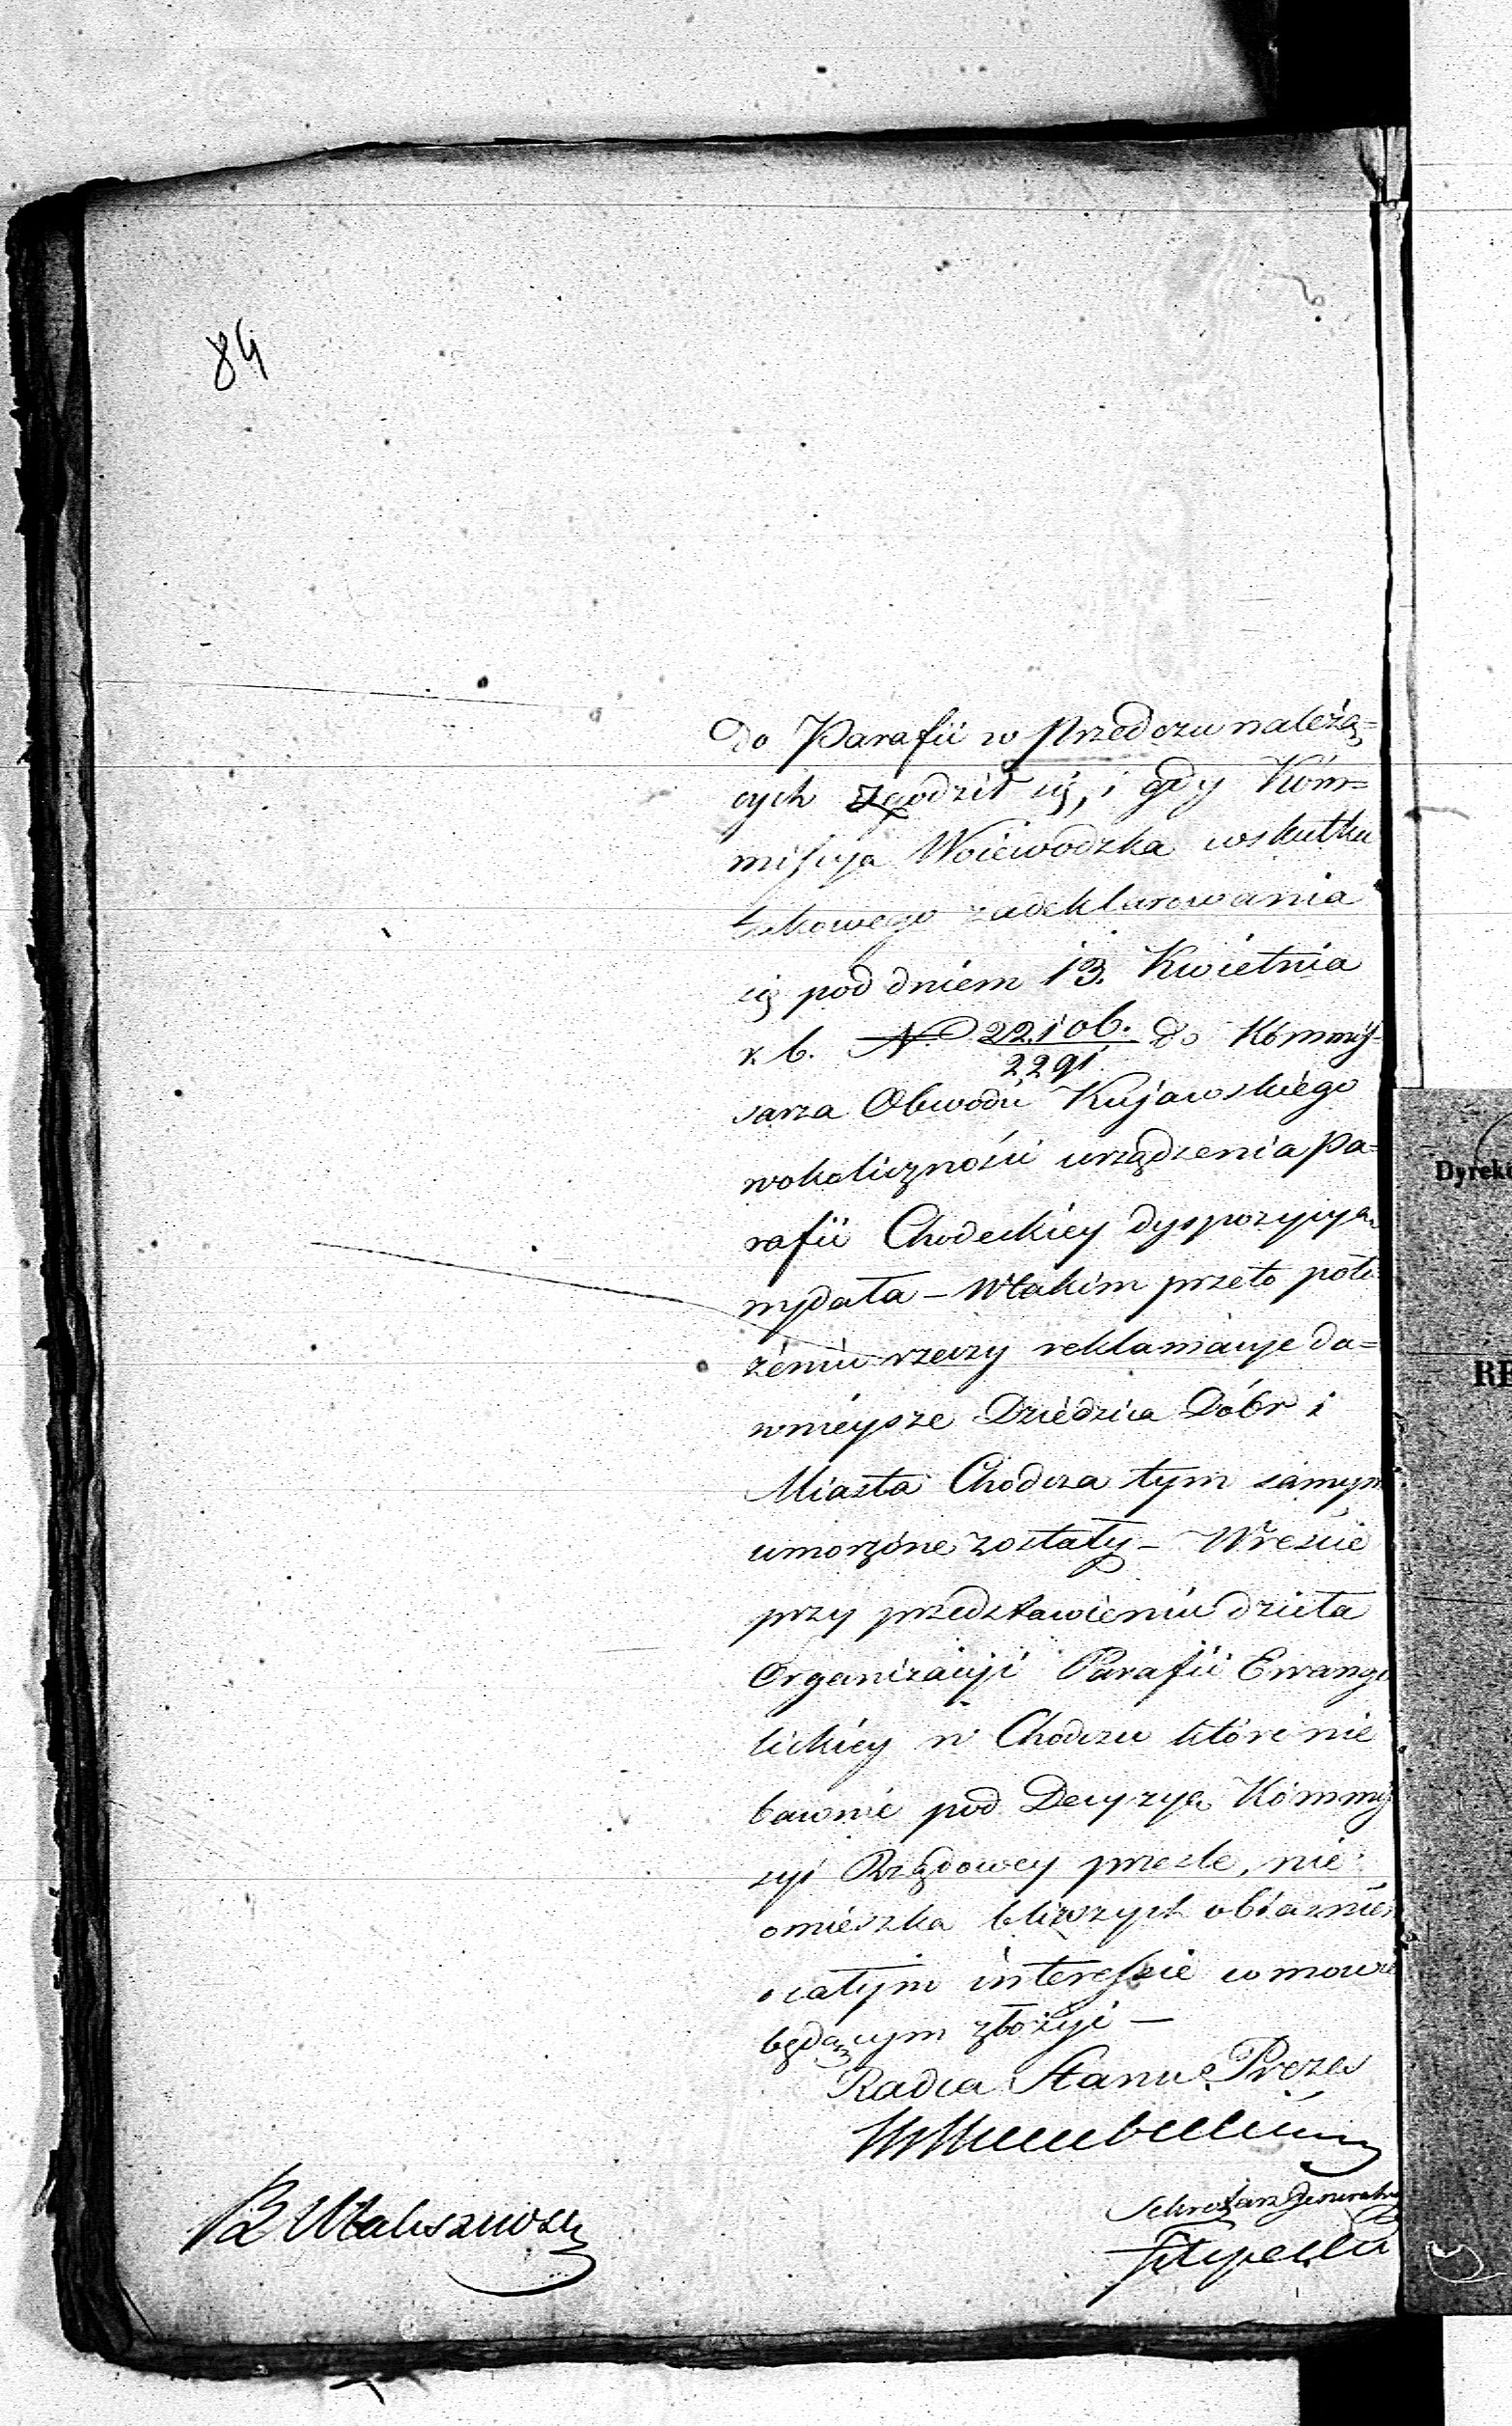 84
do Parafii w Przedczu należą=
cych zgodził się, i gdy Kom=
missyja Woiewodzka wskutku
takowego zadeklarowania
się pod dniem 13. Kwietnia
r. b. N. 22106./2291 do Kommis=
sarza Obwodu Kujawskiego
wokoliczności urządzenia Pa=
rafii Chodeckiey dyspozycyą
wydała – Wtakim przeto poło
żeniu rzeczy reklamacye da=
wnieysze Dziedzica Dóbr i
Miasta Chodcza tym samym
umorzone zostały – Wreście
przy przedstawieniu dzieła
Organizacyi Parafii Ewange
lickiey w Chodczu które nie
bawnie pod Decyzyą Kommis
syi Rządowey prześle, nie
omieszka bliższych obiaśnień
ocałym interessie w mowie
będącym złożyć –
Radca Stanu Prezes
Sekretarz Generalny